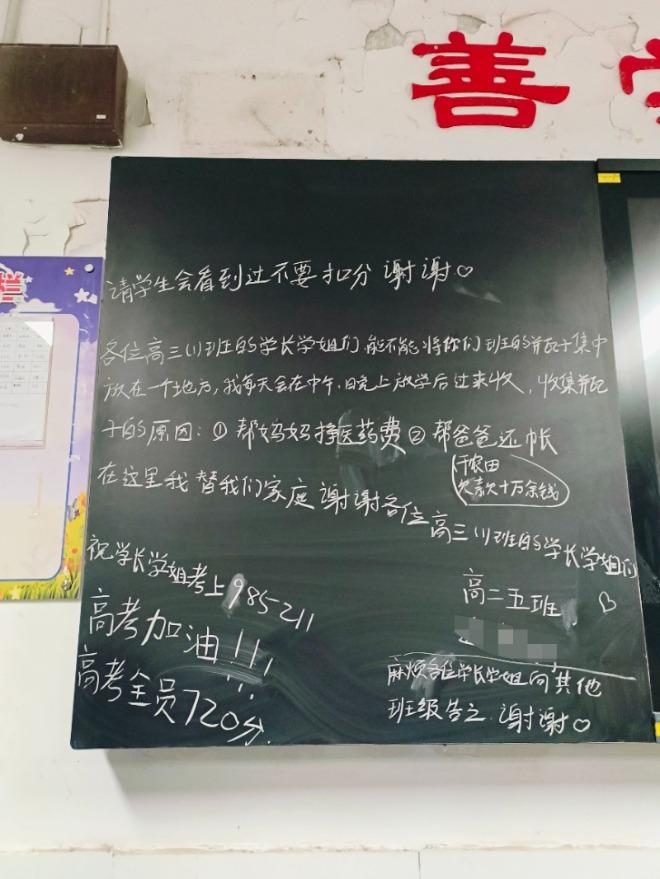 善
栏
请学生会看到过不要扣分 谢谢♡
各位高三(1)班的学长学姐们,能不能将你们班的瓶子集中
放在一个地方,我每天会在中午、晚上放学后过来收,收集瓶
子的原因:① 帮妈妈挣医药费 ② 帮爸爸还帐
干农田
欠款十万余钱
在这里我替我们家庭 谢谢各位高三(1)班的学长学姐们
♡
祝学长学姐考上985211
高考加油!!!
高考全员720分.
高二五班
麻烦各位学长学姐向其他
班级告之 谢谢♡